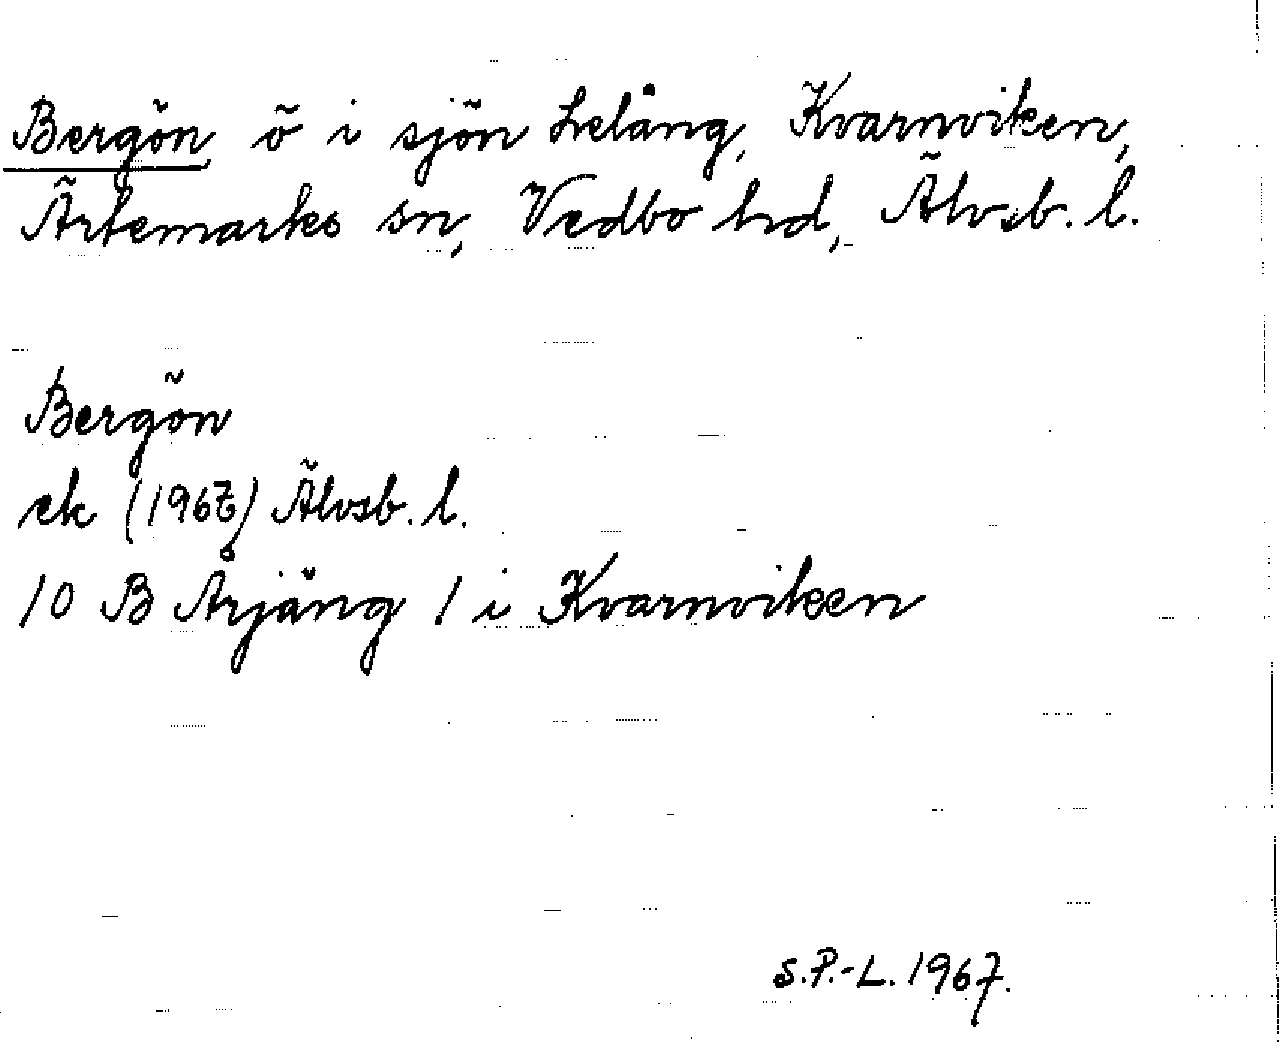 Bergön, ö i sjön Lelång, Kvarnviken,
Ärtemarks sn, Vedbo hd, Älvsb. l.
Bergön
ek (1967) Älvsb. l.
10 B Årjäng 1 i Kvarnviken
S.P.-L. 1967.